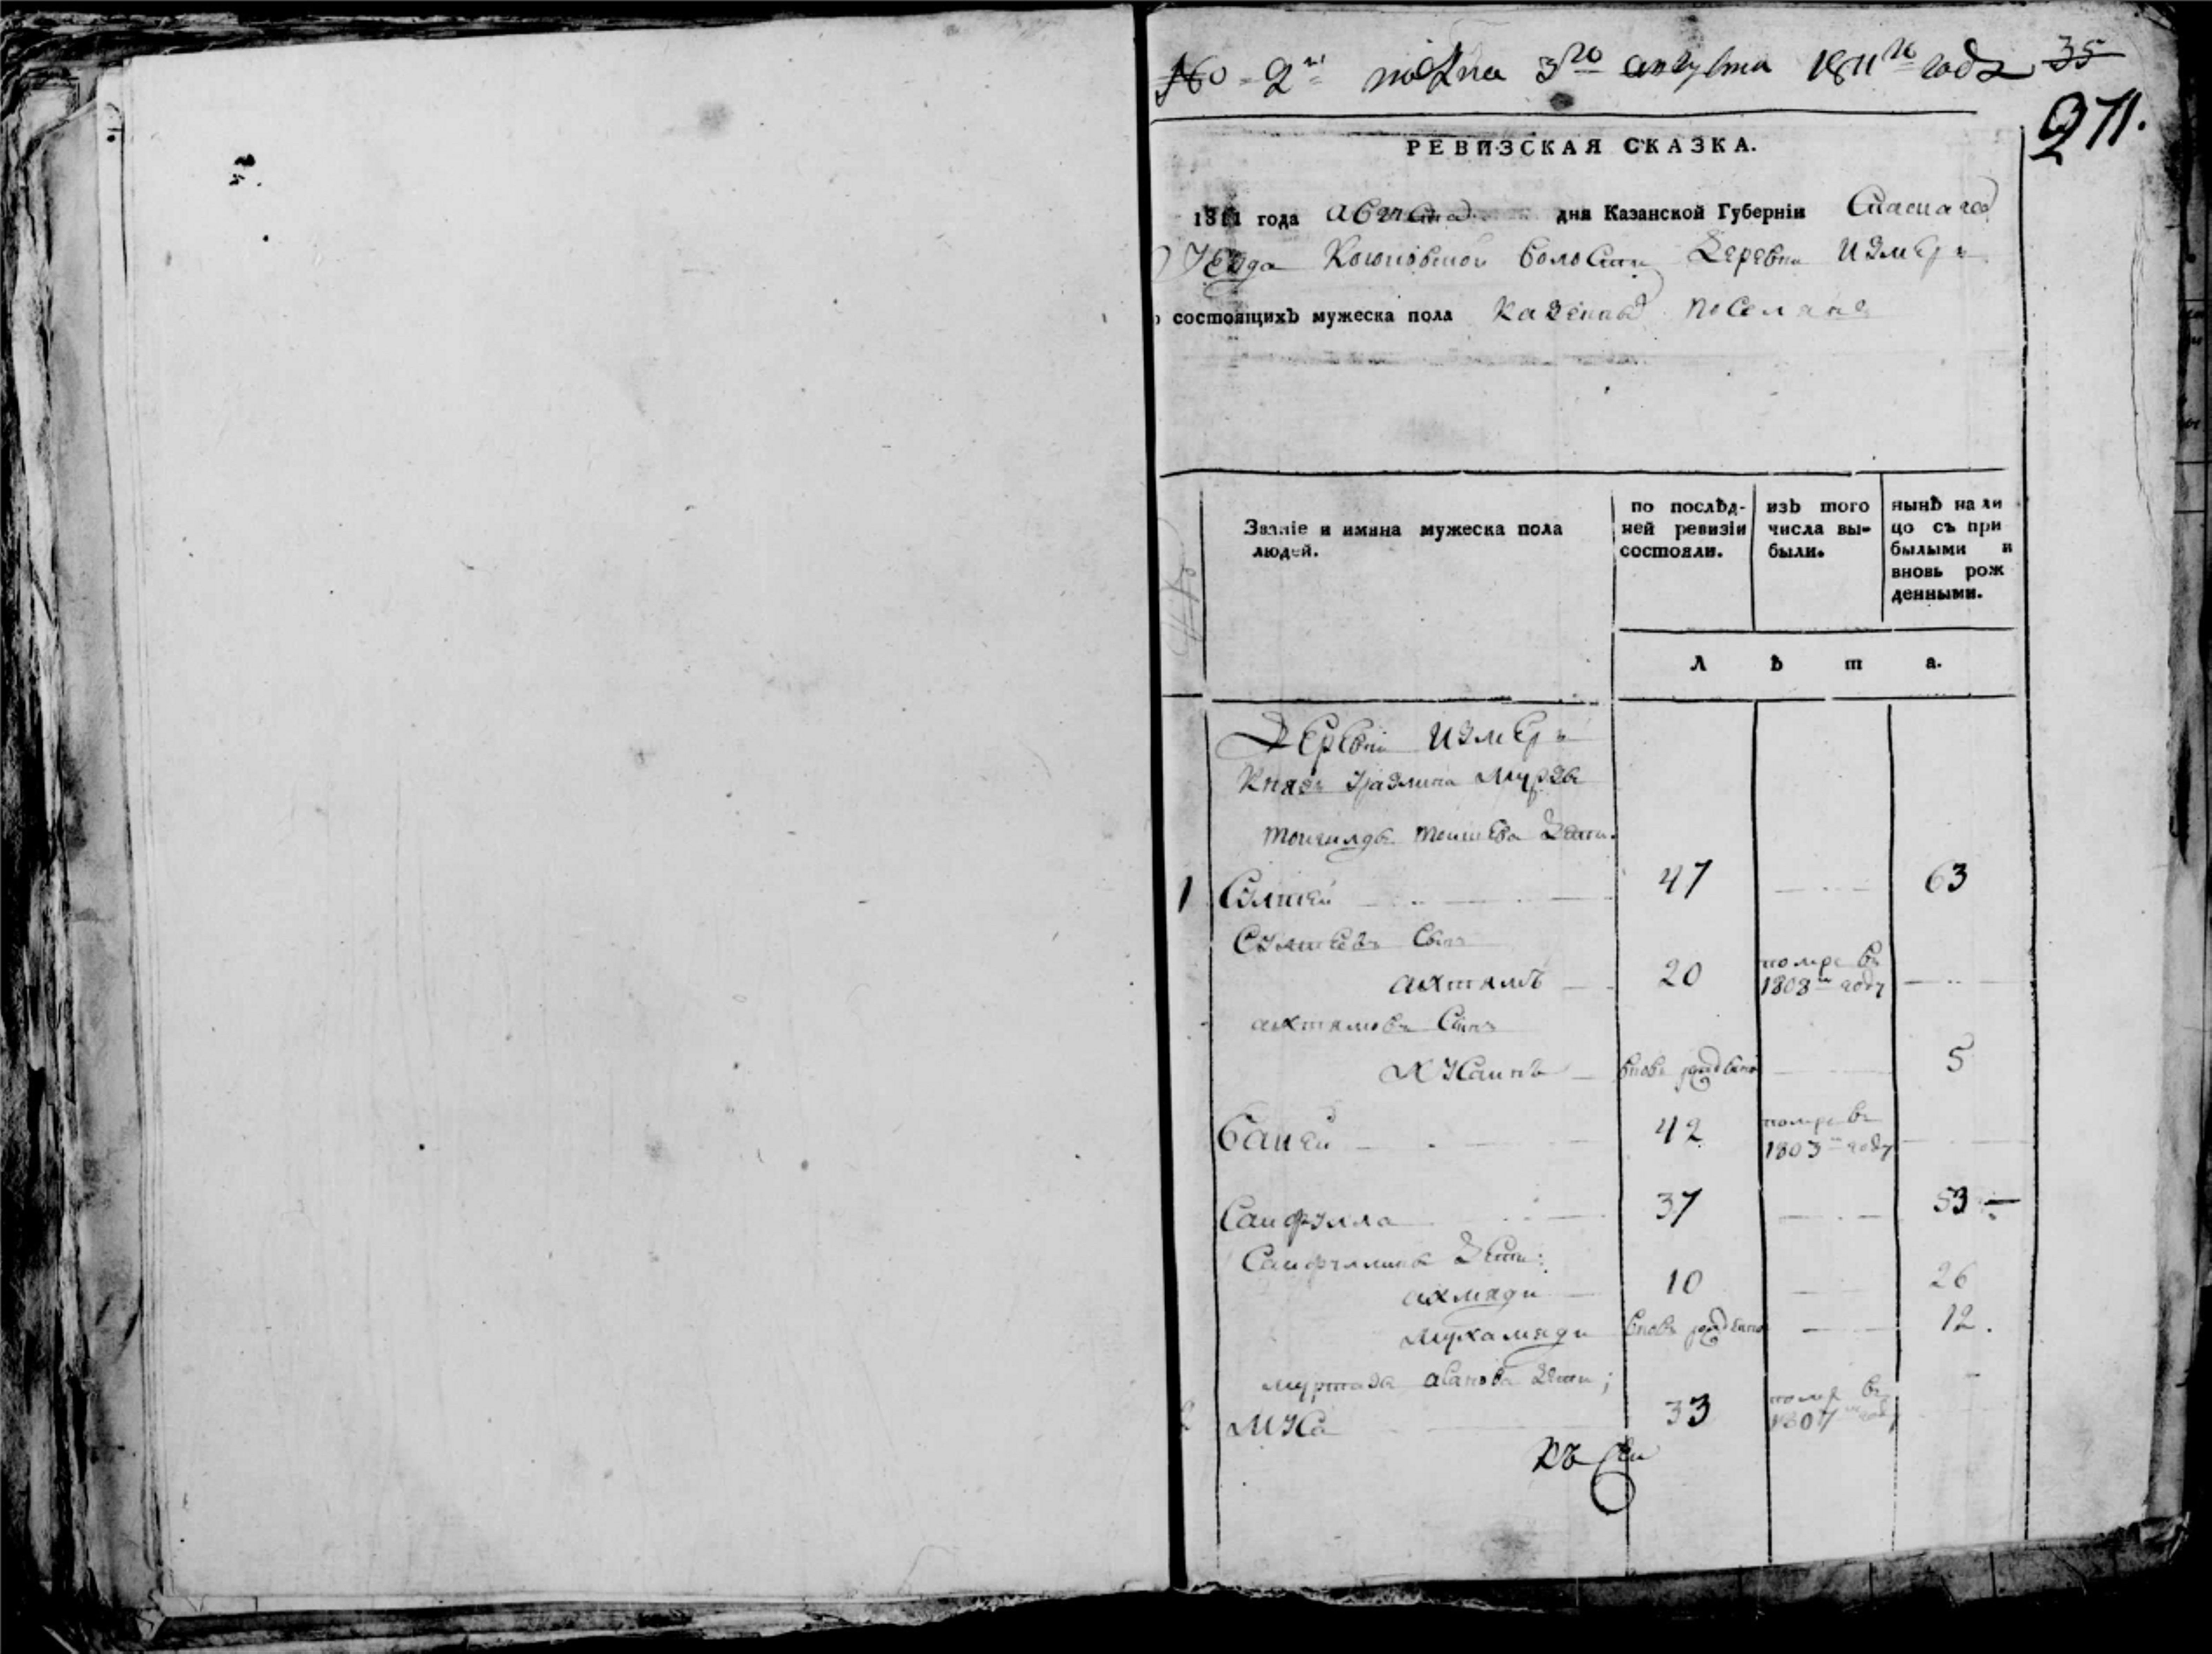 № 2й подана 3го августа 1811го года 35
271.
РЕВИЗСКАЯ СКАЗКА.
1811 года августа дня Казанской Губерніи Спаскаго
уезда волости деревни Измеръ
о состоящихъ мужеска пола казенныхъ поселянъ
Званіе и имяна мужеска пола людей.
по послѣд-
ней ревизіи
состояли.
изъ того
числа вы-
были.
нынѣ на ли
цо съ при
былыми и
вновь рож
денными.
Л ѣ т а.
Деревни Измеръ
Князь мурзы
тоигилды тоишева дети.
1 Сулшеи 47 63
Сулшеевъ сынъ
ахтямъ 20 помре въ 1808м году
ахтямовъ сынъ
Хусаинъ вновь рожденъ 5
Бакей 42 помре въ 1803м году
Саифулла 37 53
Саифуллины дети:
ахмяди 10 26
мухамяди вновь рожденъ 12.
муртаза асанова дети;
2 Муса 33 помре въ 1807м году